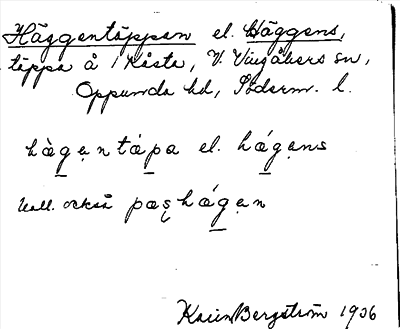 Häggentäppan el. Häggens,
täppa å i Kåsta, V. Vingåkers sn,
Oppunda hd, Söderm. l.
hàgẹntápa el. hágẹns
Kall. också pæʂhágẹn
Karin Bergström 1936